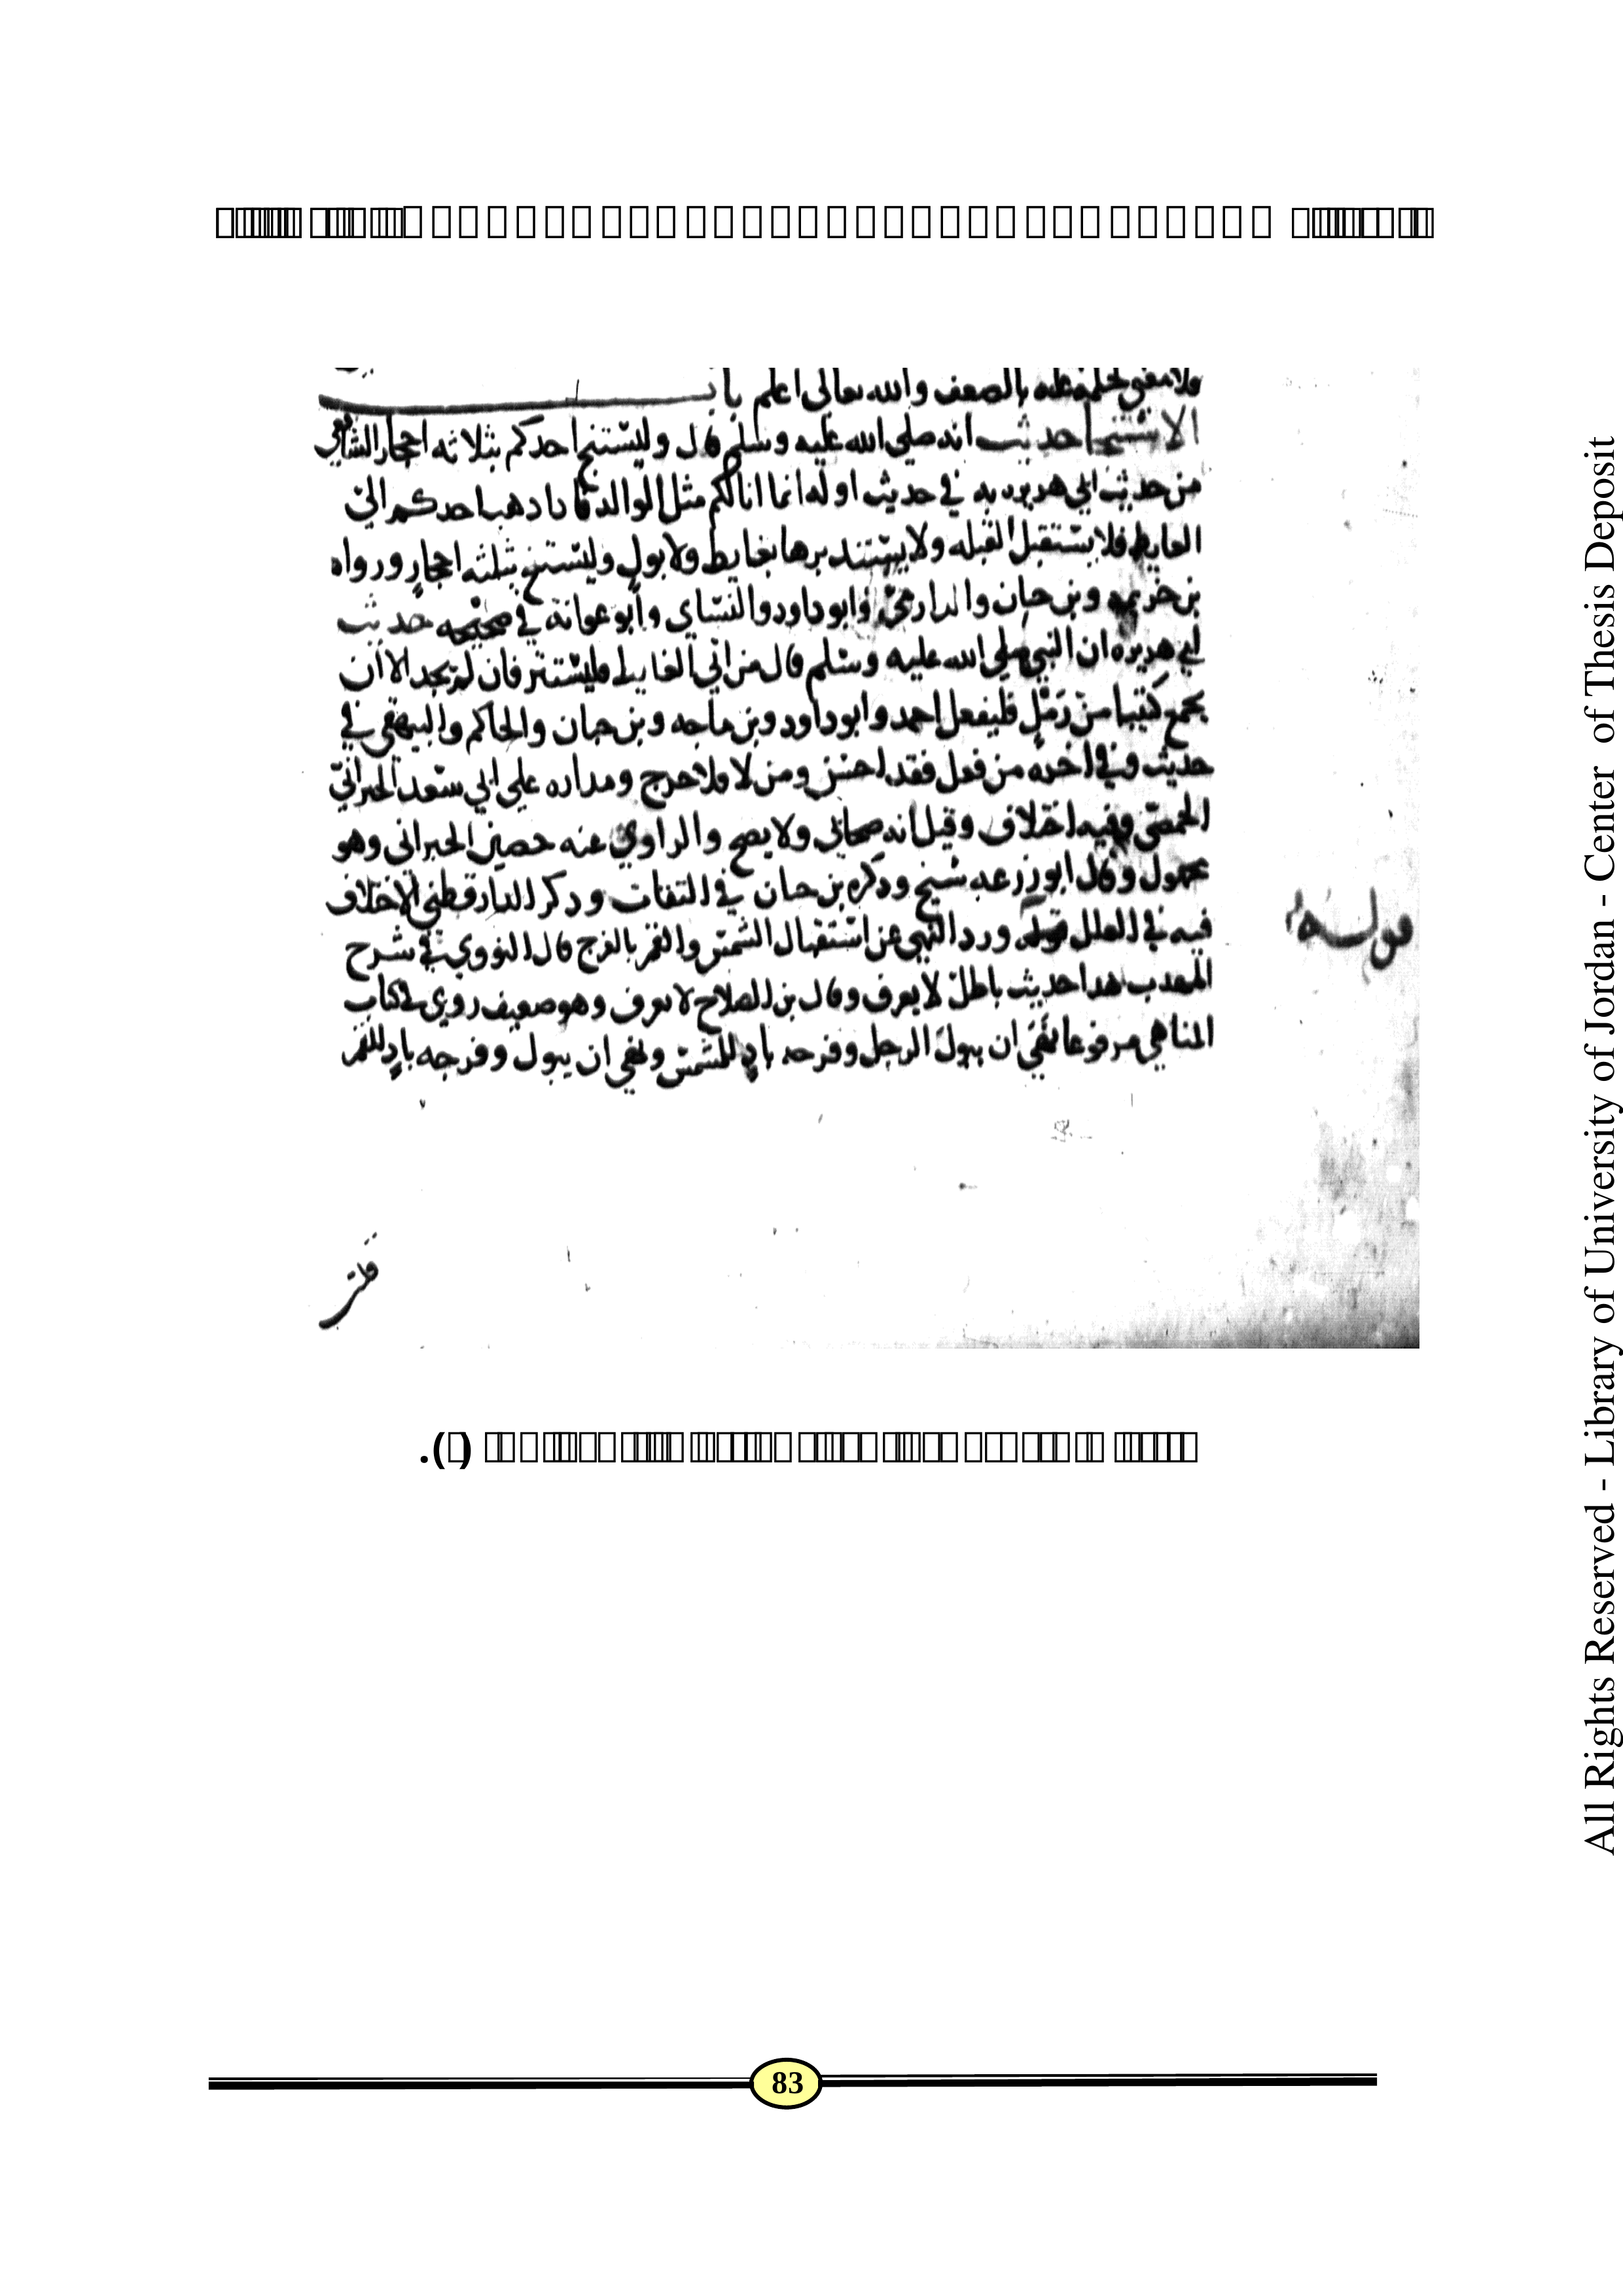 فلا معنى عليه بالضعف والله تعالى اعلم باب
الاستنجا حديث انه صلى الله عليه وسلم قال وليستنج احدكم بثلاثه احجار الشافعي
من حديث ابي هريره به في حديث اوله انما انا لكم مثل الوالد فاذا ذهب احدكم الي
الغايط فلا يستقبل القبله ولا يستدبرها بغايط ولا بول وليستنج بثلثه احجار ورواه
بن خزيمه وبن حبان والدارمي وابو داود والنساي وابو عوانة في صحيحه حديث
ابي هريره ان النبي صلى الله عليه وسلم قال من اتي الغايط فليستتر فان لم يجد الا ان
يجمع كثيبا من رمل فليفعل احمد وابو داود وبن ماجه وبن حبان والحاكم والبيهقي في
حديث وفي اخره من فعل فقد احسن ومن لا فلا حرج ومداره علي ابي سعد الحبراني
الحمصي وفيه اختلاف وقيل انه صحابي ولا يصح والراوي عنه حصين الحبراني وهو
مجهول وقال ابو زرعه شيخ وذكره بن حبان في الثقات وذكر الدارقطني الاختلاف
فيه في العلل قوله ورد النهي عن استقبال الشمس والقمر بالفرج قال النووي في شرح
قوله
المهذب هذا حديث باطل لا يعرف وقال بن الصلاح لا يعرف وهو ضعيف روي في كتاب
المناهي مرفوعا نهي ان يبول الرجل وفرجه باد للشمس ونهي ان يبول وفرجه باد للقمر
.()
83
All Rights Reserved - Library of University of Jordan - Center of Thesis Deposit